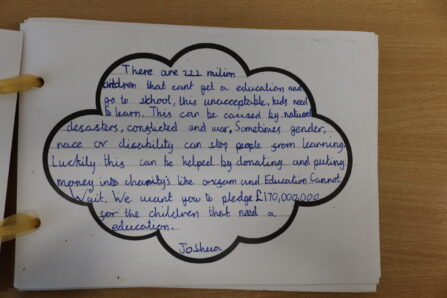 There are 222 milion
children that cant get a education and
go to school, this unacceptable, kids need
to learn. This can be caused by natural
desasters, conslicted and war, Sometimes gender,
race or disability can stop people from learning.
Luckily this can be helped by donating and puting
money into charity's like oxsam and Education Cannot
Wait. We want you to pledge £170,000,000
for the children that need a
education.
Joshua